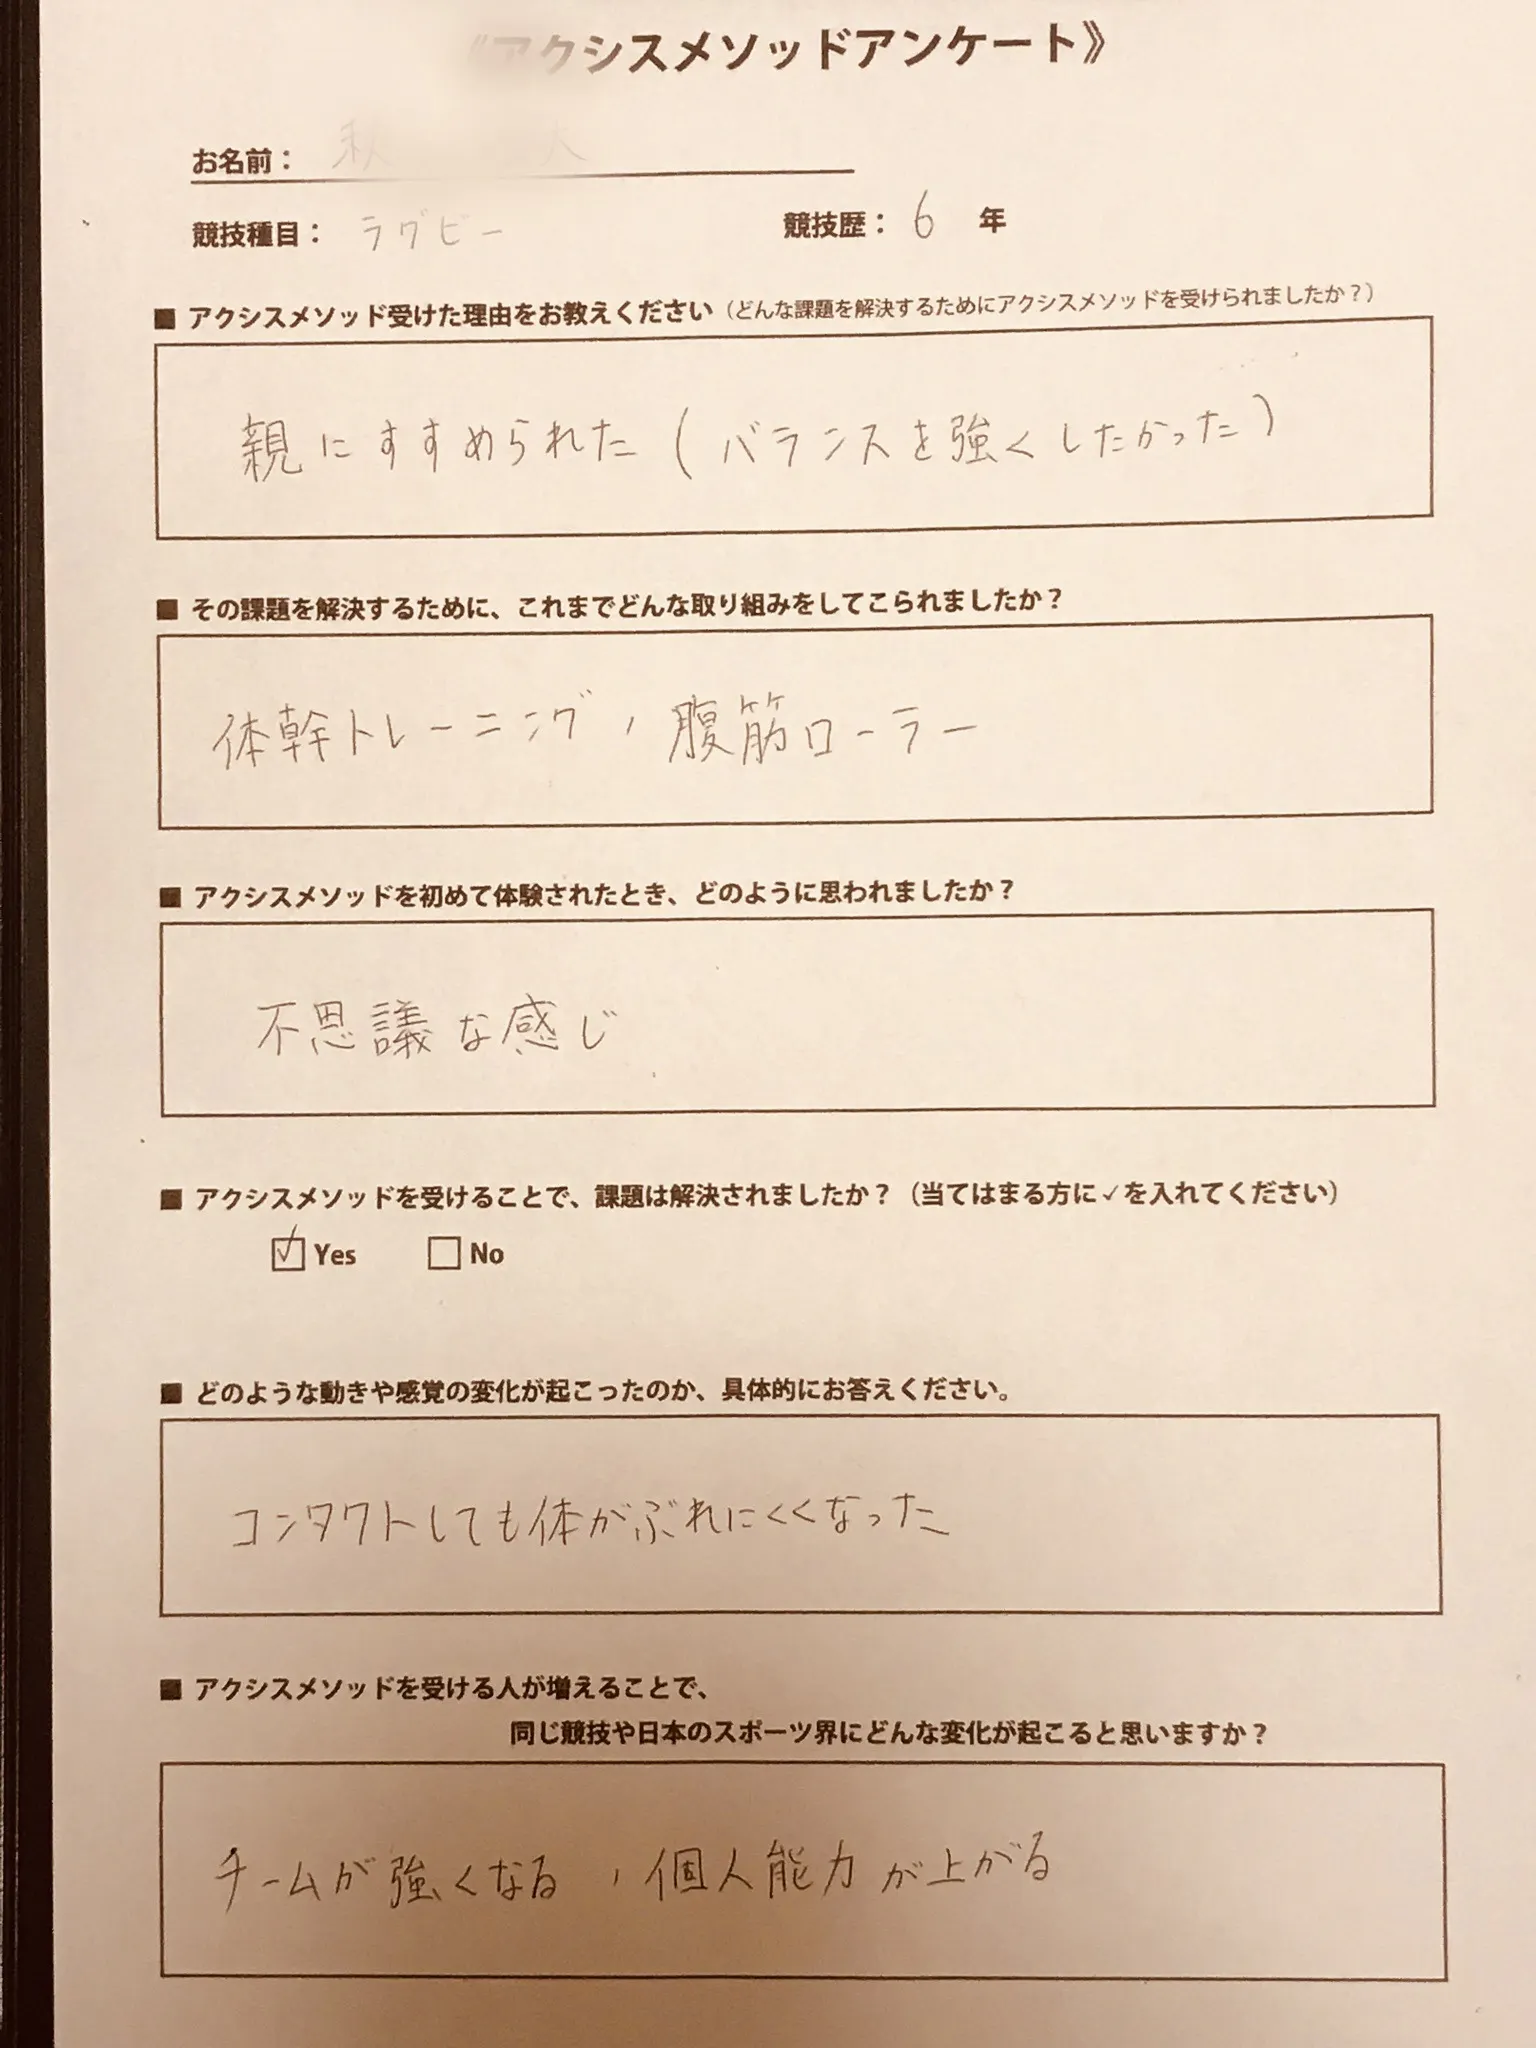 《アクシスメソッドアンケート》
お名前：
競技種目： ラグビー 競技歴： 6 年
■ アクシスメソッド受けた理由をお教えください（どんな課題を解決するためにアクシスメソッドを受けられましたか？）
親にすすめられた（バランスを強くしたかった）
■ その課題を解決するために、これまでどんな取り組みをしてこられましたか？
体幹トレーニング、腹筋ローラー
■ アクシスメソッドを初めて体験されたとき、どのように思われましたか？
不思議な感じ
■ アクシスメソッドを受けることで、課題は解決されましたか？（当てはまる方に✓を入れてください）
☑ Yes □ No
■ どのような動きや感覚の変化が起こったのか、具体的にお答えください。
コンタクトしても体がぶれにくくなった
■ アクシスメソッドを受ける人が増えることで、
同じ競技や日本のスポーツ界にどんな変化が起こると思いますか？
チームが強くなる、個人能力が上がる